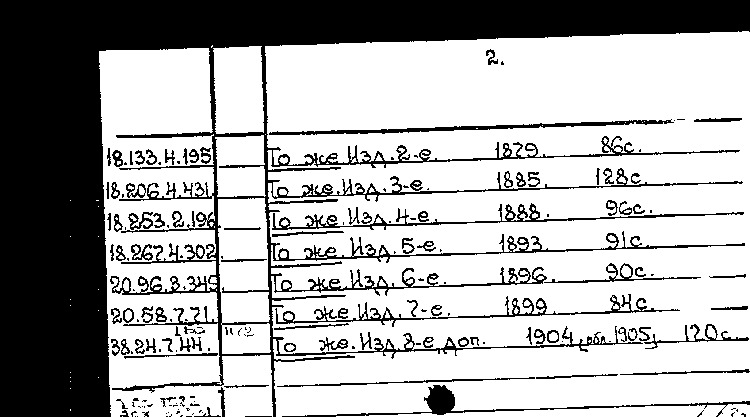 2.
18.133.4.195 То же. Изд. 2-е. 1879. 86с.
18.206.4.431. То же. Изд. 3-е. 1885. 128с.
18.253.2.196 То же. Изд. 4-е. 1888. 96с.
18.267.4.302 То же. Изд. 5-е. 1893. 91с.
20.96.8.349. То же. Изд. 6-е. 1896. 90с.
20.58.7.71. То же. Изд. 7-е. 1899. 84с.
38.24.7.44. То же. Изд. 8-е, доп. 1904 [обл. 1905] 120с.